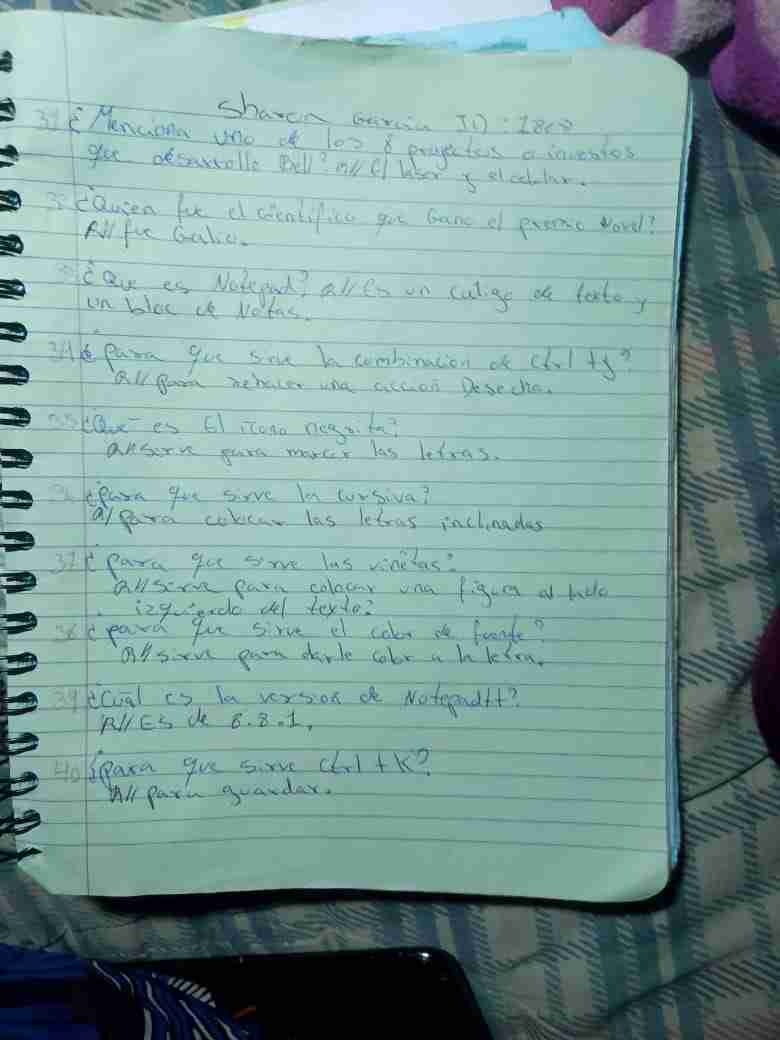 Sharon Garcia ID: 1808
31 ¿Menciona uno de los 8 proyectos o inventos
que desarrollo Bell? R// El laser y el celular.
32 ¿Quien fue el cientifico que Gano el premio Novel?
R// fue Galio.
33 ¿Que es Notepad? R// Es un codigo de texto y
un bloc de Notas.
34 ¿para que sirve la combinacion de Ctrl + y?
R// para rehacer una accion Desecha.
35 ¿Que es El icono negrita?
R// serve para marcar las letras.
36 ¿para que sirve la cursiva?
R/ para colocar las letras inclinadas
37 ¿para que sirve las viñetas?
R// Sirve para colocar una figura al lado
izquierdo del texto?
38 ¿para que sirve el color de fuente?
R// sirve para darle color a la letra.
39 ¿Cual es la version de Notepad++?
R// ES de 8.8.1.
40 ¿para que sirve Ctrl + K?
R// para guardar.